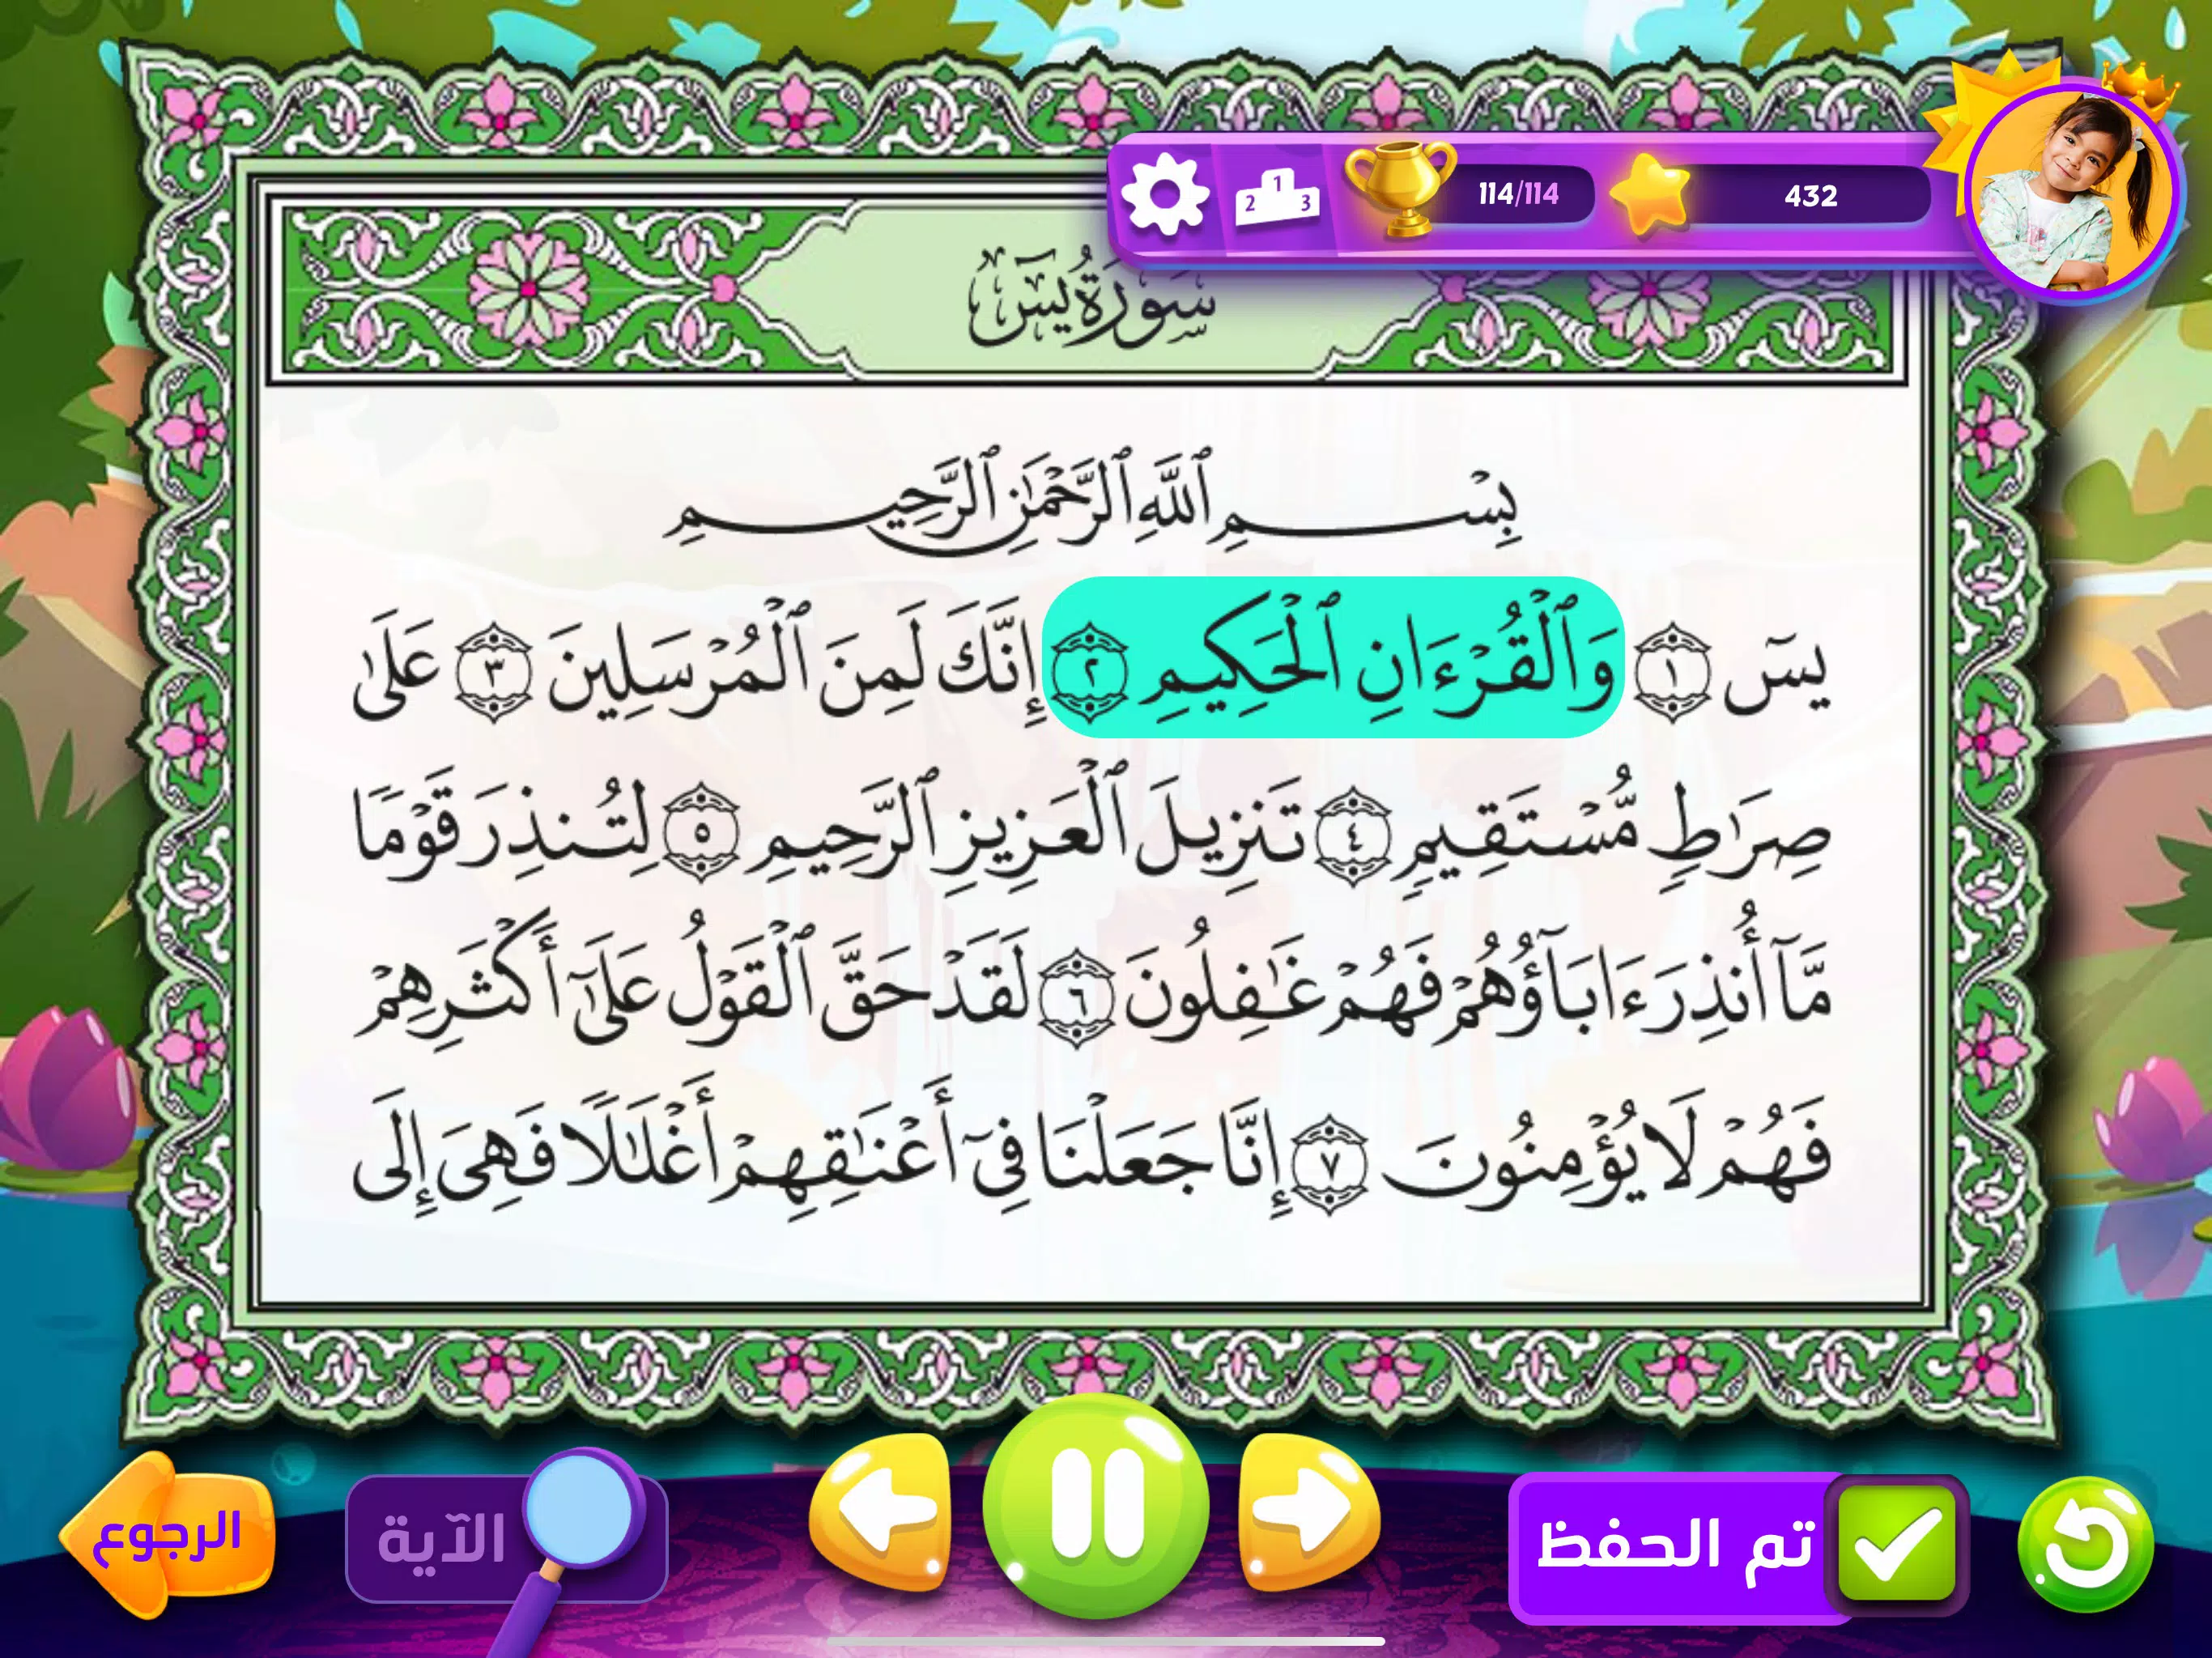 114/114
432
1
2
3
سُورَةُ يسٓ
بِسْمِ ٱللَّهِ ٱلرَّحْمَٰنِ ٱلرَّحِيمِ
يسٓ ١ وَٱلْقُرْءَانِ ٱلْحَكِيمِ ٢ إِنَّكَ لَمِنَ ٱلْمُرْسَلِينَ ٣ عَلَىٰ
صِرَٰطٍ مُّسْتَقِيمٍ ٤ تَنزِيلَ ٱلْعَزِيزِ ٱلرَّحِيمِ ٥ لِتُنذِرَ قَوْمًا
مَّآ أُنذِرَ ءَابَآؤُهُمْ فَهُمْ غَٰفِلُونَ ٦ لَقَدْ حَقَّ ٱلْقَوْلُ عَلَىٰٓ أَكْثَرِهِمْ
فَهُمْ لَا يُؤْمِنُونَ ٧ إِنَّا جَعَلْنَا فِىٓ أَعْنَٰقِهِمْ أَغْلَٰلًا فَهِىَ إِلَى
تم الحفظ
الآية
الرجوع